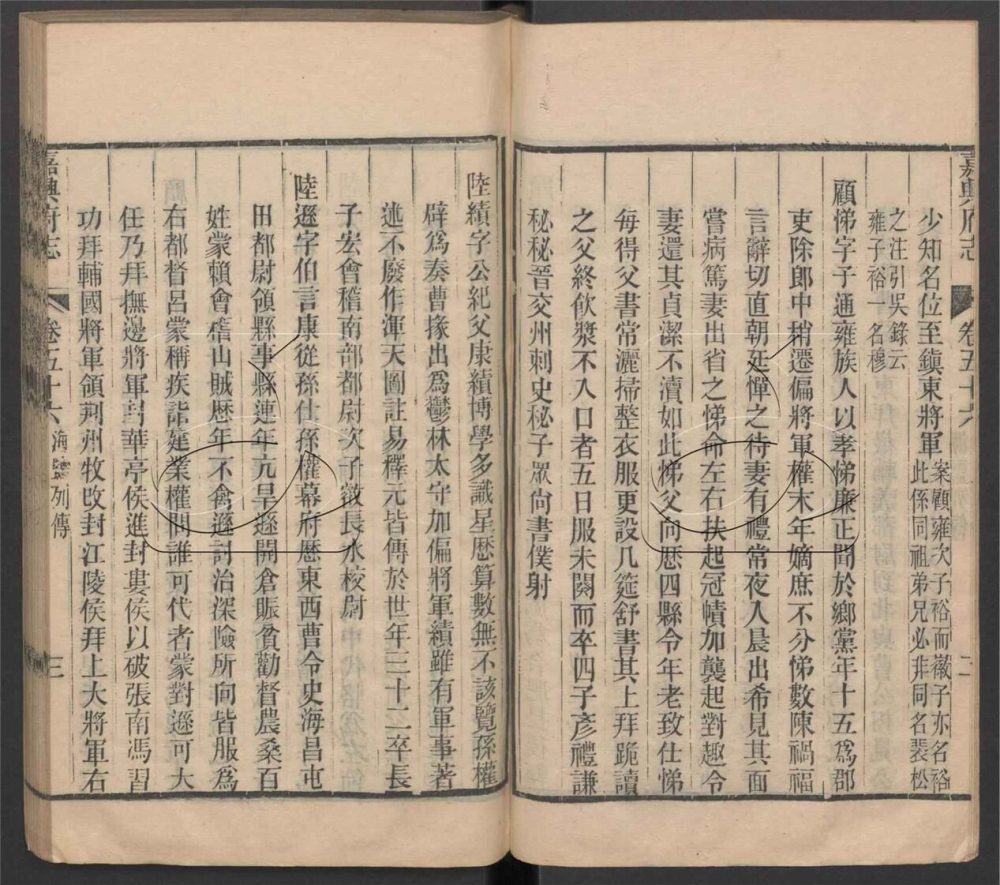 嘉興府志
卷五十六
二
少知名位至鎭東將軍案顧雍次子裕而徽子亦名裕此係同祖弟兄必非同名裴松
之注引吳錄云雍子裕一名穆
顧悌字子通雍族人以孝悌廉正聞於鄉黨年十五爲郡
吏除郎中稍遷偏將軍權末年嫡庶不分悌數陳禍福
言辭切直朝廷憚之待妻有禮常夜入晨出希見其面
嘗病篤妻出省之悌命左右扶起冠幘加襲起對趣令
妻還其貞潔不瀆如此悌父向歷四縣令年老致仕悌
每得父書常灑掃整衣服更設几筵舒書其上拜跪讀
之父終飲漿不入口者五日服未闋而卒四子彥禮謙
秘秘晉交州刺史秘子眾尙書僕射
陸績字公紀父康績博學多識星歷算數無不該覽孫權
辟爲奏曹掾出爲鬱林太守加偏將軍績雖有軍事著
述不廢作渾天圖註易釋元皆傳於世年三十二卒長
子宏會稽南部都尉次子叡長水校尉
陸遜字伯言康從孫仕孫權幕府歷東西曹令史海昌屯
田都尉領縣事縣連年亢旱遜開倉賑貧勸督農桑百
姓蒙賴會稽山賊歷年不禽遜討治深險所向皆服爲
右都督呂蒙稱疾詣建業權問誰可代者蒙對遜可大
任乃拜撫邊將軍封華亭侯進封婁侯以破張南馮習
功拜輔國將軍領荊州牧改封江陵侯拜上大將軍右
嘉興府志
卷五十六
海鹽列傳
三